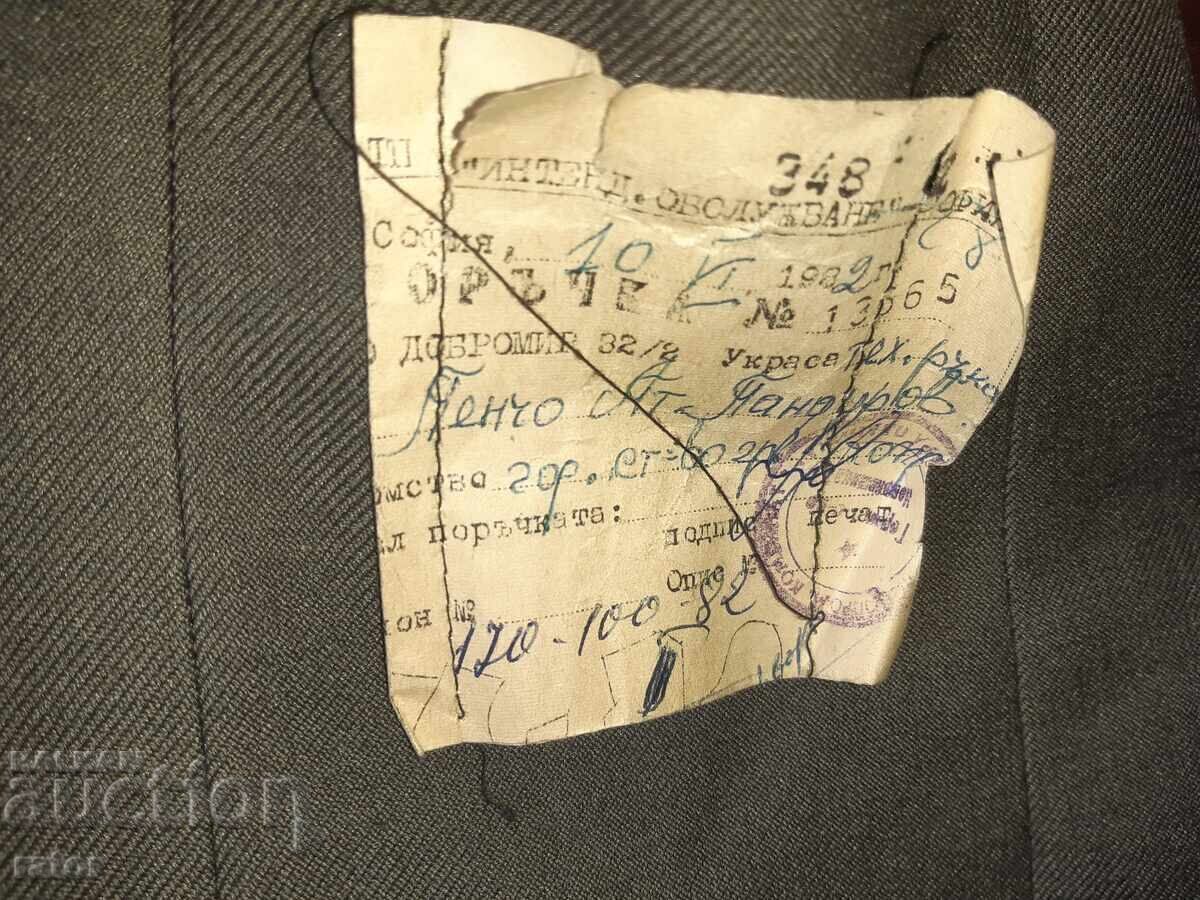 348
ТП "ИНТЕНД.ОБСЛУЖВАНЕ"
София, 10 VI 1982 г
ОРЪЧКА № 13865
ДОБРОМИР 32/2 Украса Тех.
Пенчо Ат. Пандуров
омство гор. ст-во гр.
л поръчката: подпис печат
Опис №
он №
170-100-82
BALKAN
auction
rator